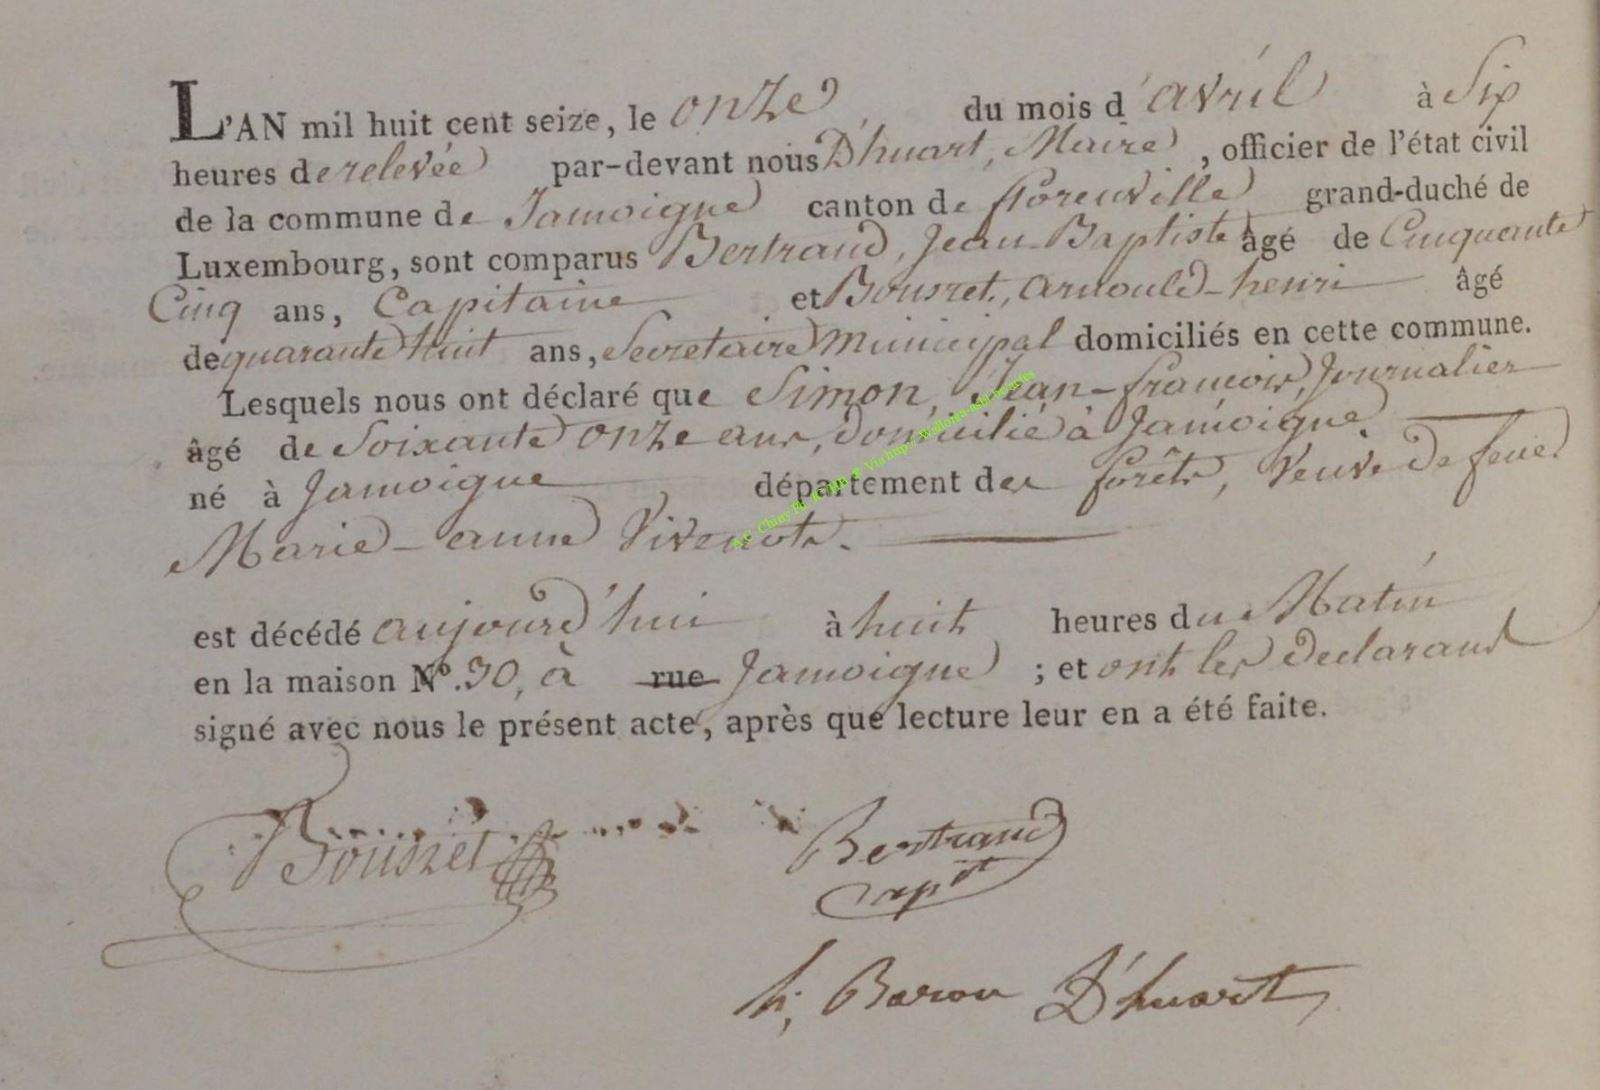 L'AN mil huit cent seize, le onze du mois d'avril à Six
heures de relevée par-devant nous D'huart, Maire, officier de l'état civil
de la commune de Jamoigne canton de florenville grand-duché de
Luxembourg, sont comparus Bertrand, Jean-Baptiste âgé de Cinquante
Cinq ans, Capitaine et Bousret, arnould-henri âgé
de quarante huit ans, Secretaire Municipal domiciliés en cette commune.
Lesquels nous ont déclaré que Simon, Jean-françois, Journalier
âgé de Soixante onze ans, domicilié à Jamoigne
né à Jamoigne, département des forêts, Veuve de feue
Marie-anne Vivenots.
est décédé aujourd'hui à huit heures du Matin
en la maison Nº. 90, à rue Jamoigne ; et ont les declarans
signé avec nous le présent acte, après que lecture leur en a été faite.
Bousret Bertrand
capit
h; Baron D'huart